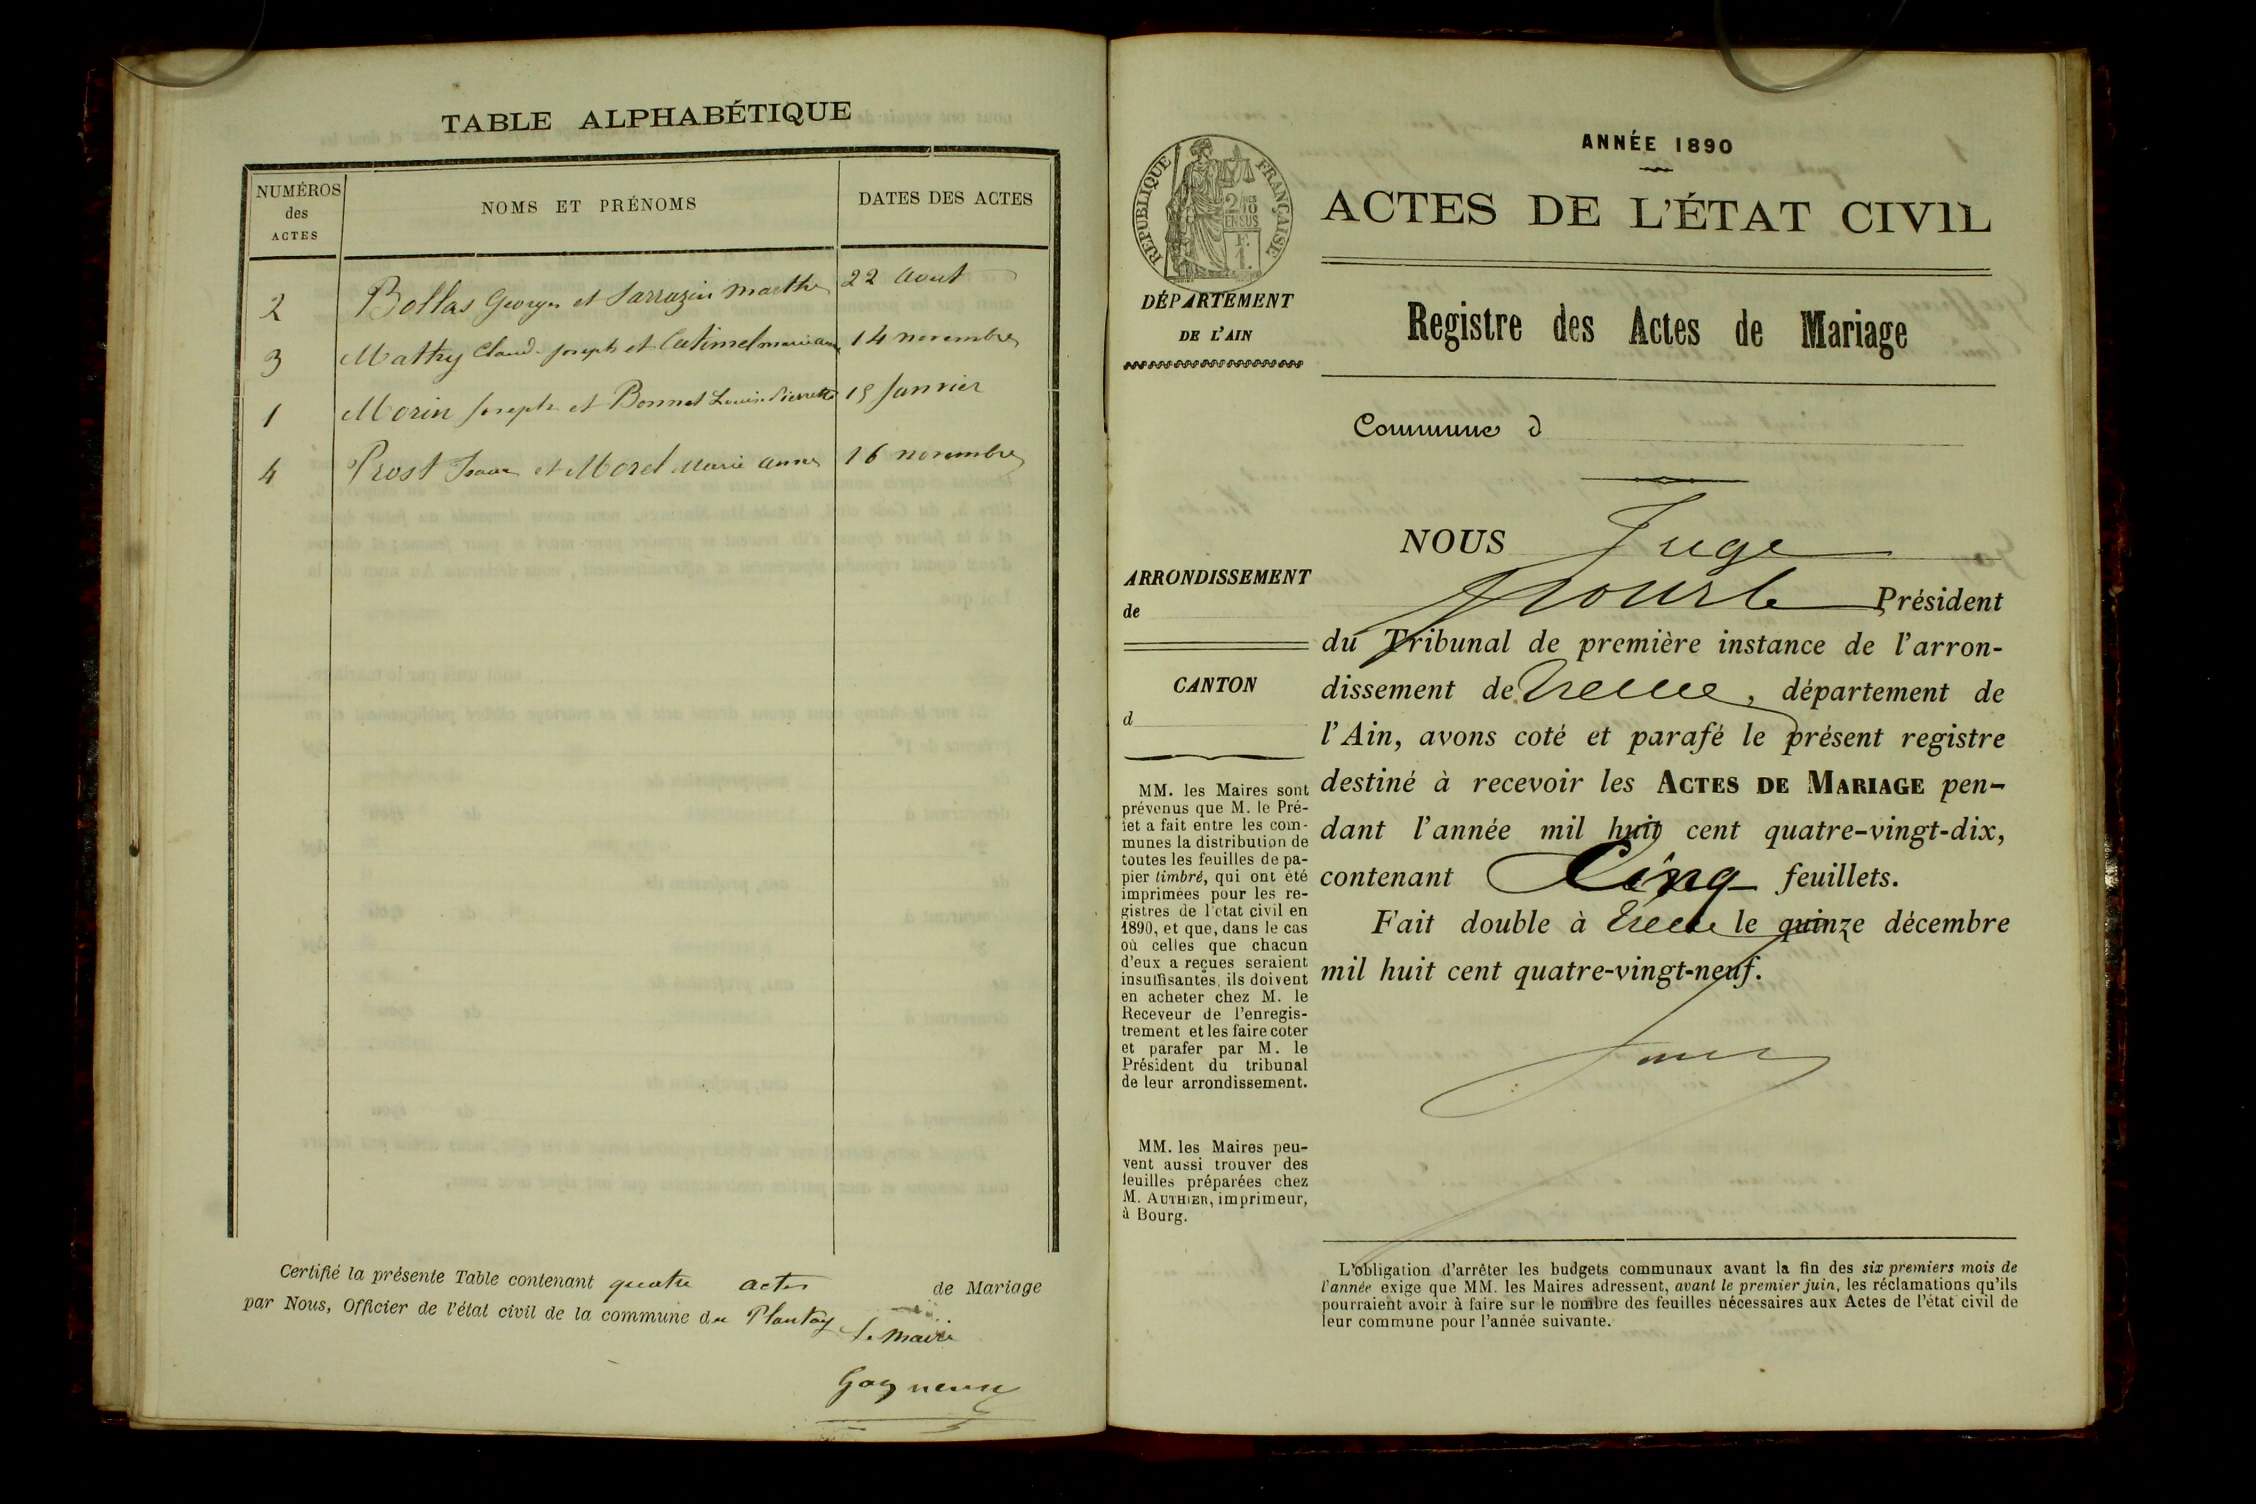 TABLE ALPHABÉTIQUE
NUMÉROS des ACTES
NOMS ET PRÉNOMS
DATES DES ACTES
2 Bollas Georges et Sarrazin Marthe 22 Aout
3 Mathy Claude Joseph et Catimel marie anne 14 novembre
1 Morin Joseph et Bonnet Louise Pierrette 15 Janvier
4 Prost Isaac et Morel Marie Anne 16 novembre
Certifié la présente Table contenant quatre actes de Mariage
par Nous, Officier de l'état civil de la commune du Plantay
le Maire
Gagneux
ANNÉE 1890
RÉPUBLIQUE FRANÇAISE
2/10 EN SUS
F. 1.
ACTES DE L'ÉTAT CIVIL
DÉPARTEMENT
DE L'AIN
Registre des Actes de Mariage
Commune d
ARRONDISSEMENT
de
CANTON
d
MM. les Maires sont
prévenus que M. le Pré-
fet a fait entre les com-
munes la distribution de
toutes les feuilles de pa-
pier timbré, qui ont été
imprimées pour les re-
gistres de l'état civil en
1890, et que, dans le cas
où celles que chacun
d'eux a reçues seraient
insuffisantes, ils doivent
en acheter chez M. le
Receveur de l'enregis-
trement et les faire coter
et parafer par M. le
Président du tribunal
de leur arrondissement.
MM. les Maires peu-
vent aussi trouver des
feuilles préparées chez
M. AUTHIER, imprimeur,
à Bourg.
NOUS Juge
pour le Président
du Tribunal de première instance de l'arron-
dissement de Trévoux, département de
l'Ain, avons coté et parafé le présent registre
destiné à recevoir les ACTES DE MARIAGE pen-
dant l'année mil huit cent quatre-vingt-dix,
contenant Cinq feuillets.
Fait double à Trévoux le quinze décembre
mil huit cent quatre-vingt-neuf.
L'obligation d'arrêter les budgets communaux avant la fin des six premiers mois de
l'année exige que MM. les Maires adressent, avant le premier juin, les réclamations qu'ils
pourraient avoir à faire sur le nombre des feuilles nécessaires aux Actes de l'état civil de
leur commune pour l'année suivante.